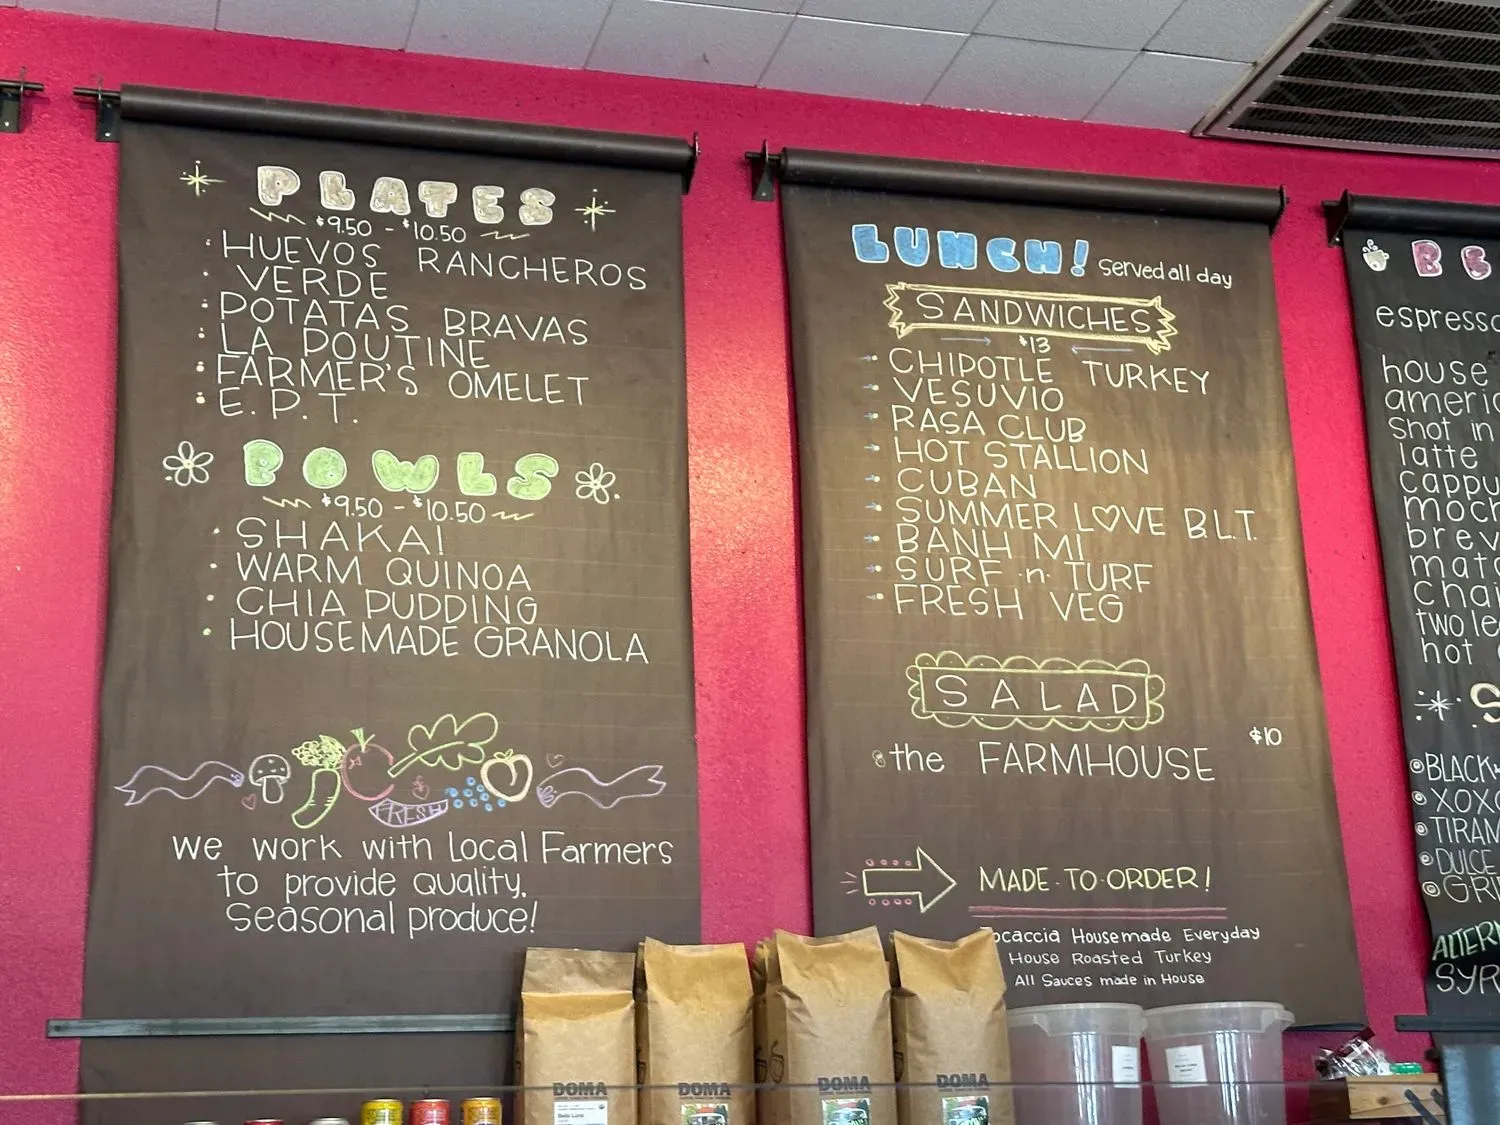 PLATES
$9.50 - $10.50
HUEVOS RANCHEROS
VERDE
POTATAS BRAVAS
LA POUTINE
FARMER'S OMELET
E.P.T.
BOWLS
$9.50 - $10.50
SHAKAI
WARM QUINOA
CHIA PUDDING
HOUSEMADE GRANOLA
FRESH
we work with Local Farmers
to provide Quality,
Seasonal produce!
LUNCH! Served all day
SANDWICHES
$13
CHIPOTLE TURKEY
VESUVIO
RASA CLUB
HOT STALLION
CUBAN
SUMMER LOVE B.L.T.
BANH MI
SURF n TURF
FRESH VEG
SALAD
$10
the FARMHOUSE
MADE·TO·ORDER!
Housemade Everyday
House Roasted Turkey
All Sauces made in House
house
shot in
latte
two
hot
DULCE
DOMA
DOMA
DOMA
DOMA